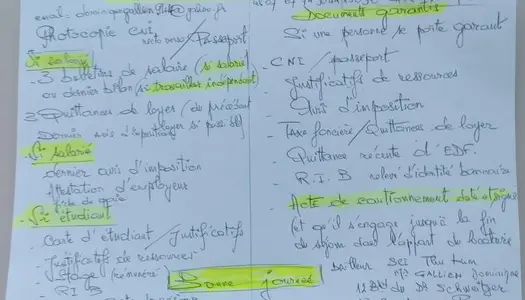 Photocopie CNI / Passeport
recto verso
Si salarié
- 3 bulletins de salaire (si salarié
ou dernier bilan (si travailleur indépendant)
2 Quittances de loyer / de précédent
loyer si possible
- Si salarié
dernier avis d'imposition
Attestation d'employeur
- Si étudiant
- Carte d'étudiant / Justificatifs
- Justificatifs de ressources
- Stage (rémunéré)
- R I B
Documents garants
Si une personne se porte garant
- CNI / passeport
- Justificatifs de ressources
- Avis d'imposition
- Taxe foncière / Quittances de loyer
- Quittance récente d'EDF.
- R. I. B relevé d'identité bancaire
- Acte de cautionnement daté et signé
(et qu'il s'engage jusqu'à la fin
de séjour dans l'appart de locataire
Bailleur SCI
GALLIEN Dominique
Bonne journée